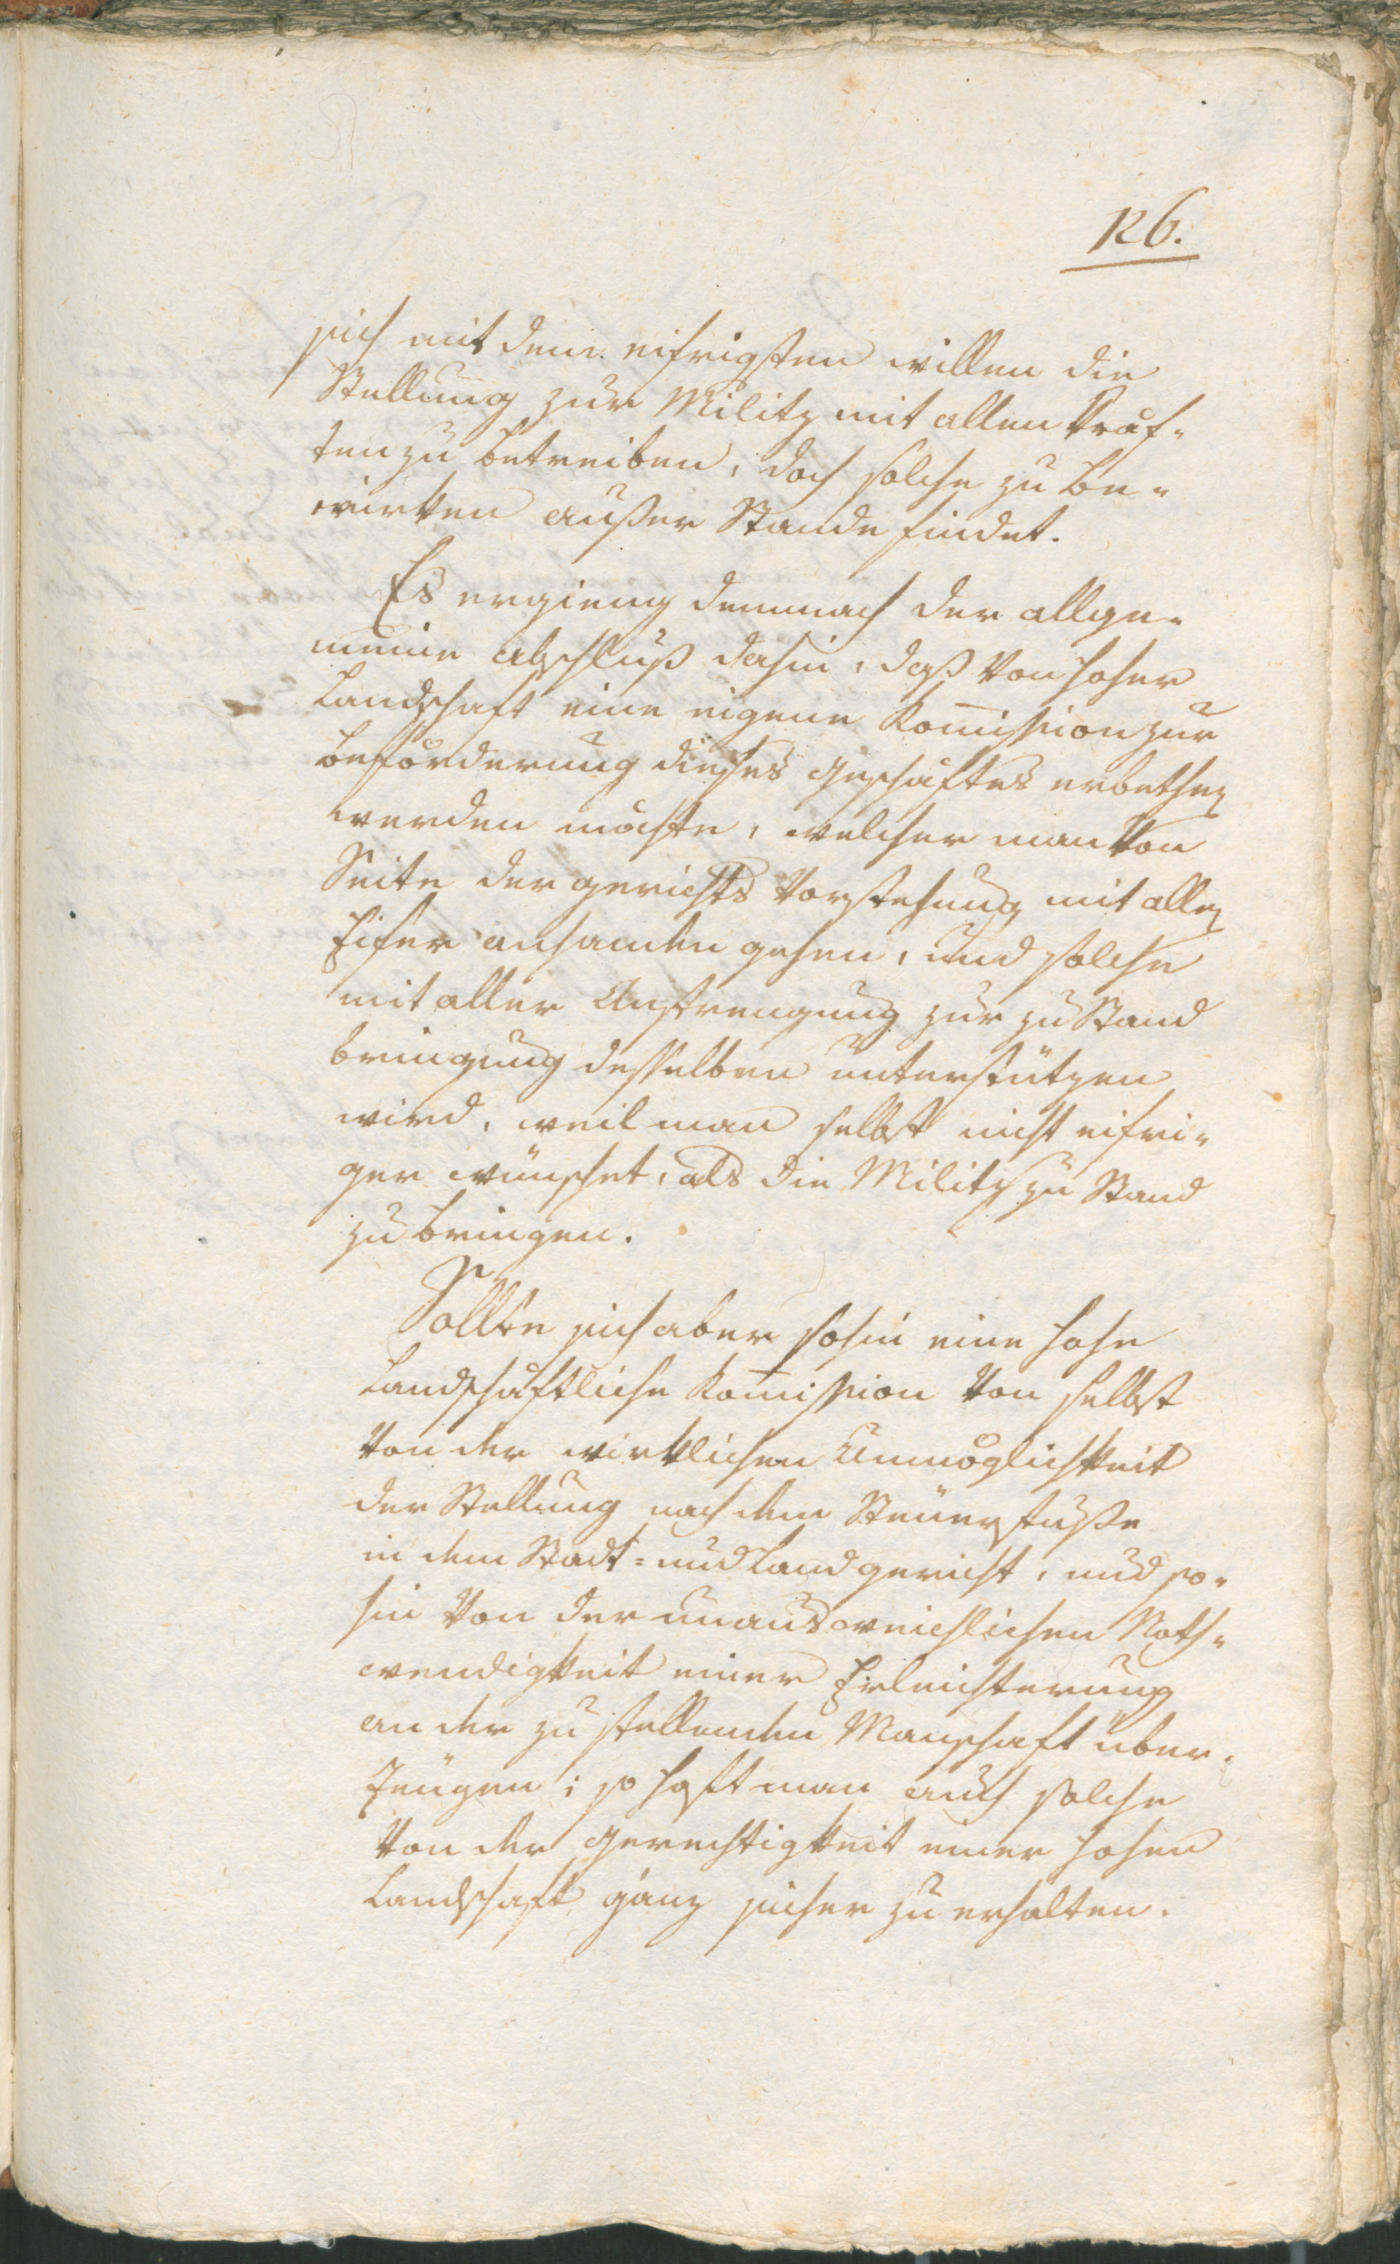 126.
sich mit dem eifrigsten willen die
Stellung zur Militz mit allen Kräf-
ten zu betreiben, doch solche zu be-
wirken außer Stande findet.
Es ergieng demnach der allge-
meine abschluß dahin, daß von hoher
Landschaft eine eigene Kom̅ission zur
beförderung dieses geschäftes erbethen
werden möchte, welcher man von
Seite der gerichts Vorstehung mit allen
Eifer anhanden gehen, und solche
mit aller Anstrengung zur zu Stand
bringung desselben unterstützen
wird, weil man selbst nicht eifri-
ger wünschet, als die Militz zu Stand
zu bringen.
Sollte sich aber sohin eine hohe
Landschäftliche Kom̅ission von selbst
von der wirklichen Unmöglichkeit
der Stellung nach dem Steuerfuße
in dem Stadt- und Landgericht, und so-
hin von der unausweichlichen Noth-
wendigkeit einer Erleichterung
an der zu stellenden Manschaft über-
zeugen; so hoft man auch solche
von der gerechtigkeit einer hohen
Landschaft ganz sicher zu erhalten.